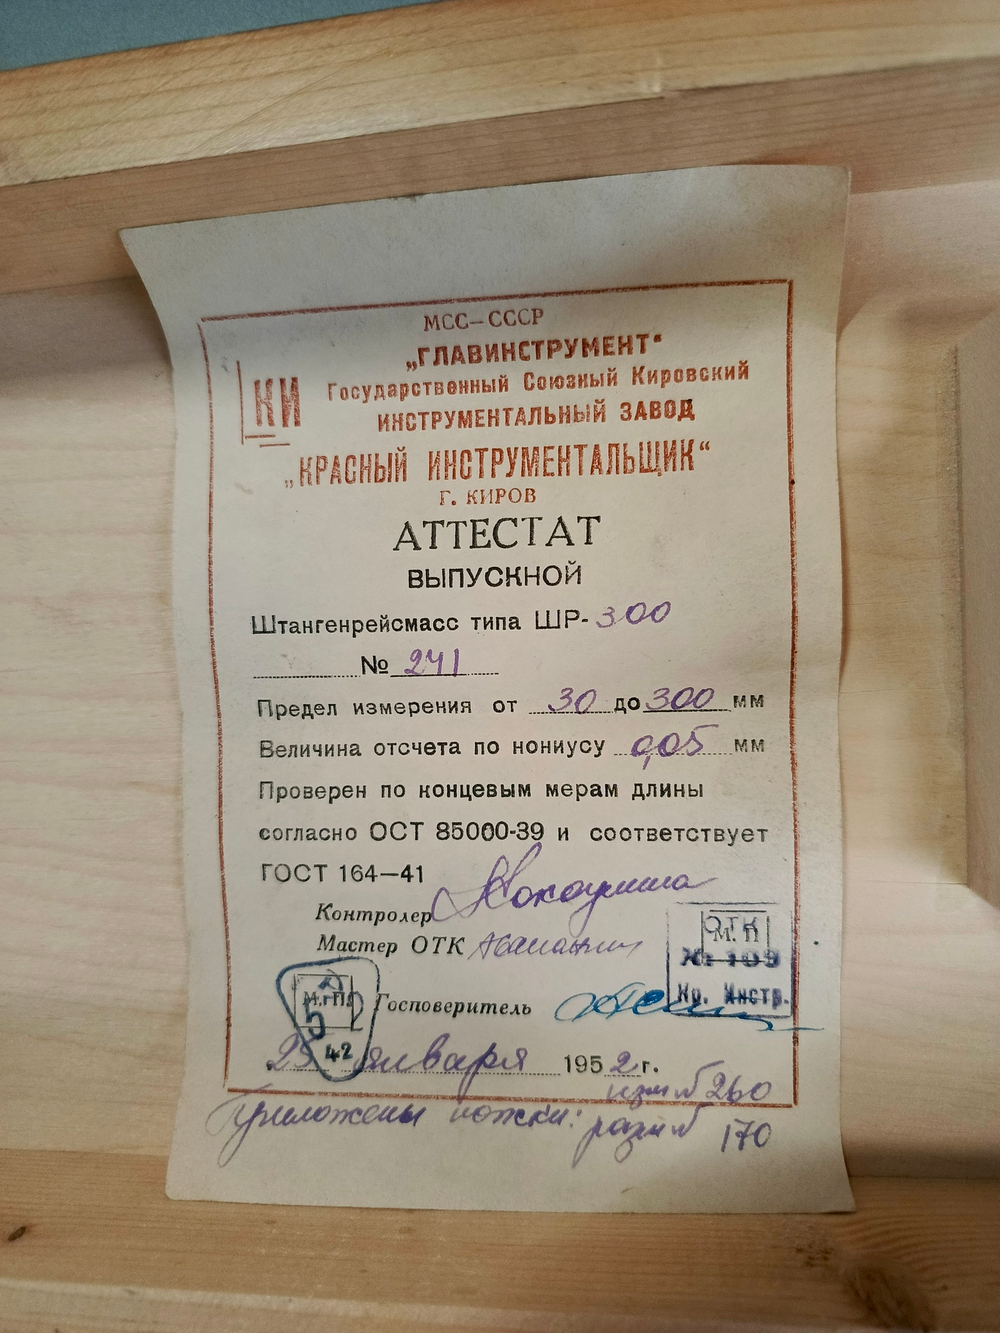 МСС—СССР
„ГЛАВИНСТРУМЕНТ“
КИ
Государственный Союзный Кировский
ИНСТРУМЕНТАЛЬНЫЙ ЗАВОД
„КРАСНЫЙ ИНСТРУМЕНТАЛЬЩИК“
Г. КИРОВ
АТТЕСТАТ
ВЫПУСКНОЙ
Штангенрейсмасс типа ШР-300
№ 241
Предел измерения от 30 до 300 мм
Величина отсчета по нониусу 0,05 мм
Проверен по концевым мерам длины
согласно ОСТ 85000-39 и соответствует
ГОСТ 164—41
Контролер
Мастер ОТК
ОТК
М. П
№ 109
Кр. Инстр.
Госповеритель
М. П.
5
42
января 1952 г.
Приложены ножки: изм № 260
разм № 170